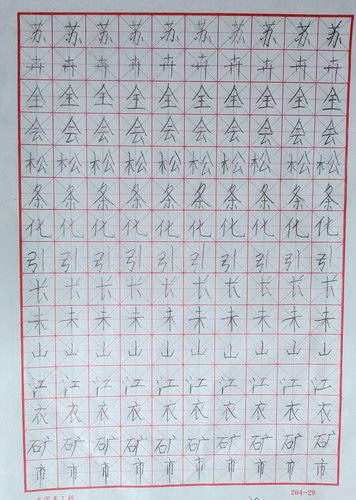 苏苏苏苏苏苏苏苏苏苏
卉卉卉卉卉卉卉卉卉卉
全全全全全全全全全全
会会会会会会会会会会
松松松松松松松松松松
条条条条条条条条条条
化化化化化化化化化化
引引引引引引引引引引
长长长长长长长长长长
未未未未未未未未未未
山山山山山山山山山山
江江江江江江江江江江
衣衣衣衣衣衣衣衣衣衣
矿矿矿矿矿矿矿矿矿矿
市市市市市市市市市市
204-29